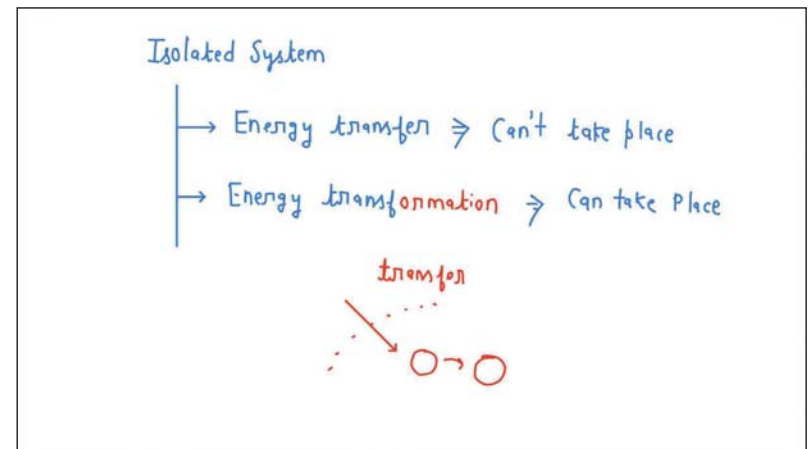 Isolated System
→ Energy transfer ⇒ Can't take place
→ Energy transformation ⇒ Can take Place
transfer